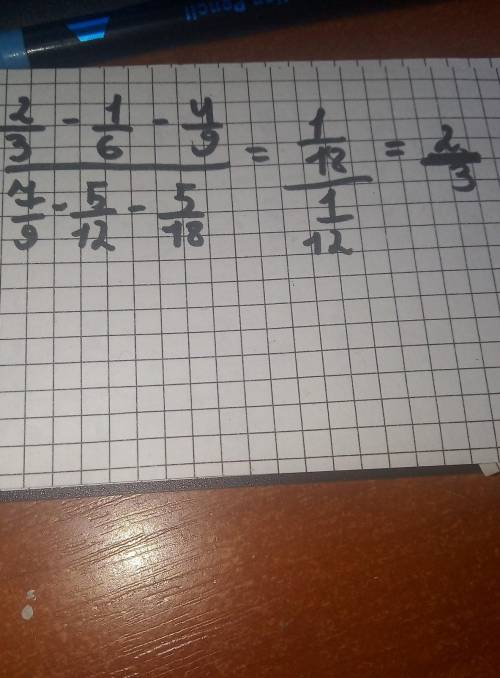 2/3 - 1/6 - 4/9
7/9 - 5/12 - 5/18
= 1/18
1/12
= 2/3